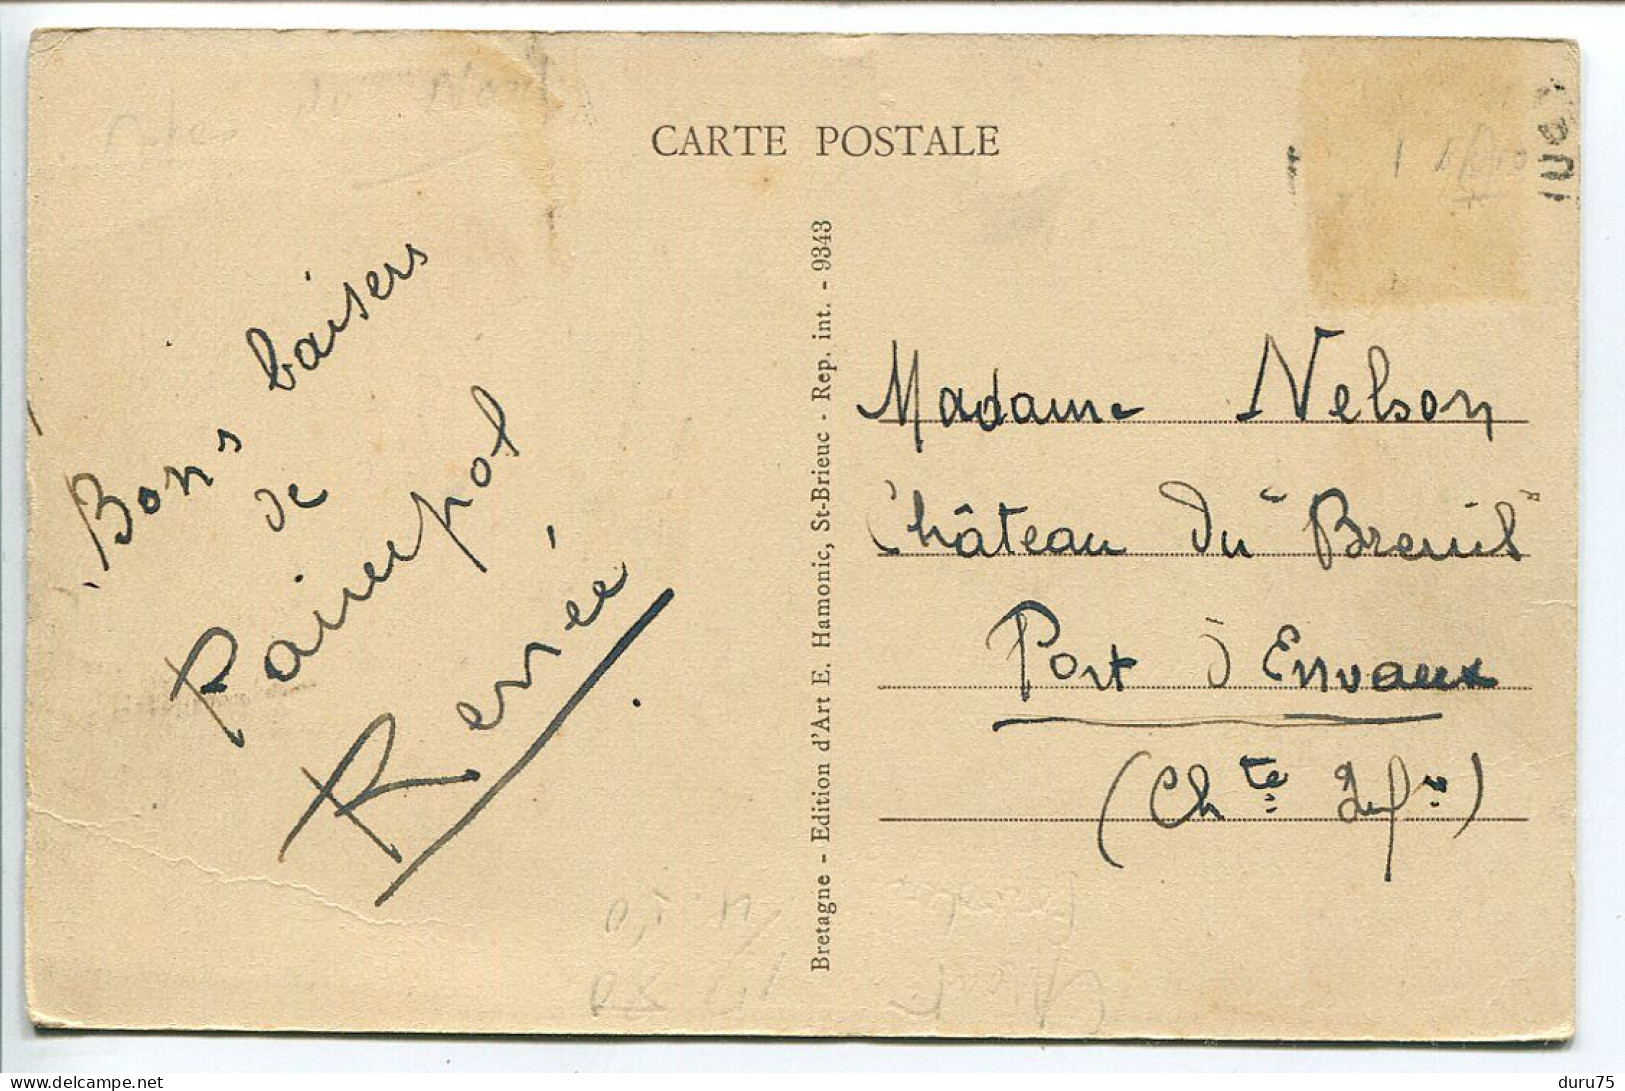 CARTE POSTALE
Bons baisers
de
Paimpol
Renée
Bretagne - Edition d'Art E. Hamonic, St-Brieuc - Rep. int. - 9343
Madame Nelson
Château du "Breuil"
Port d'Envaux
(Chte Infre)
delcampe.net
duru75